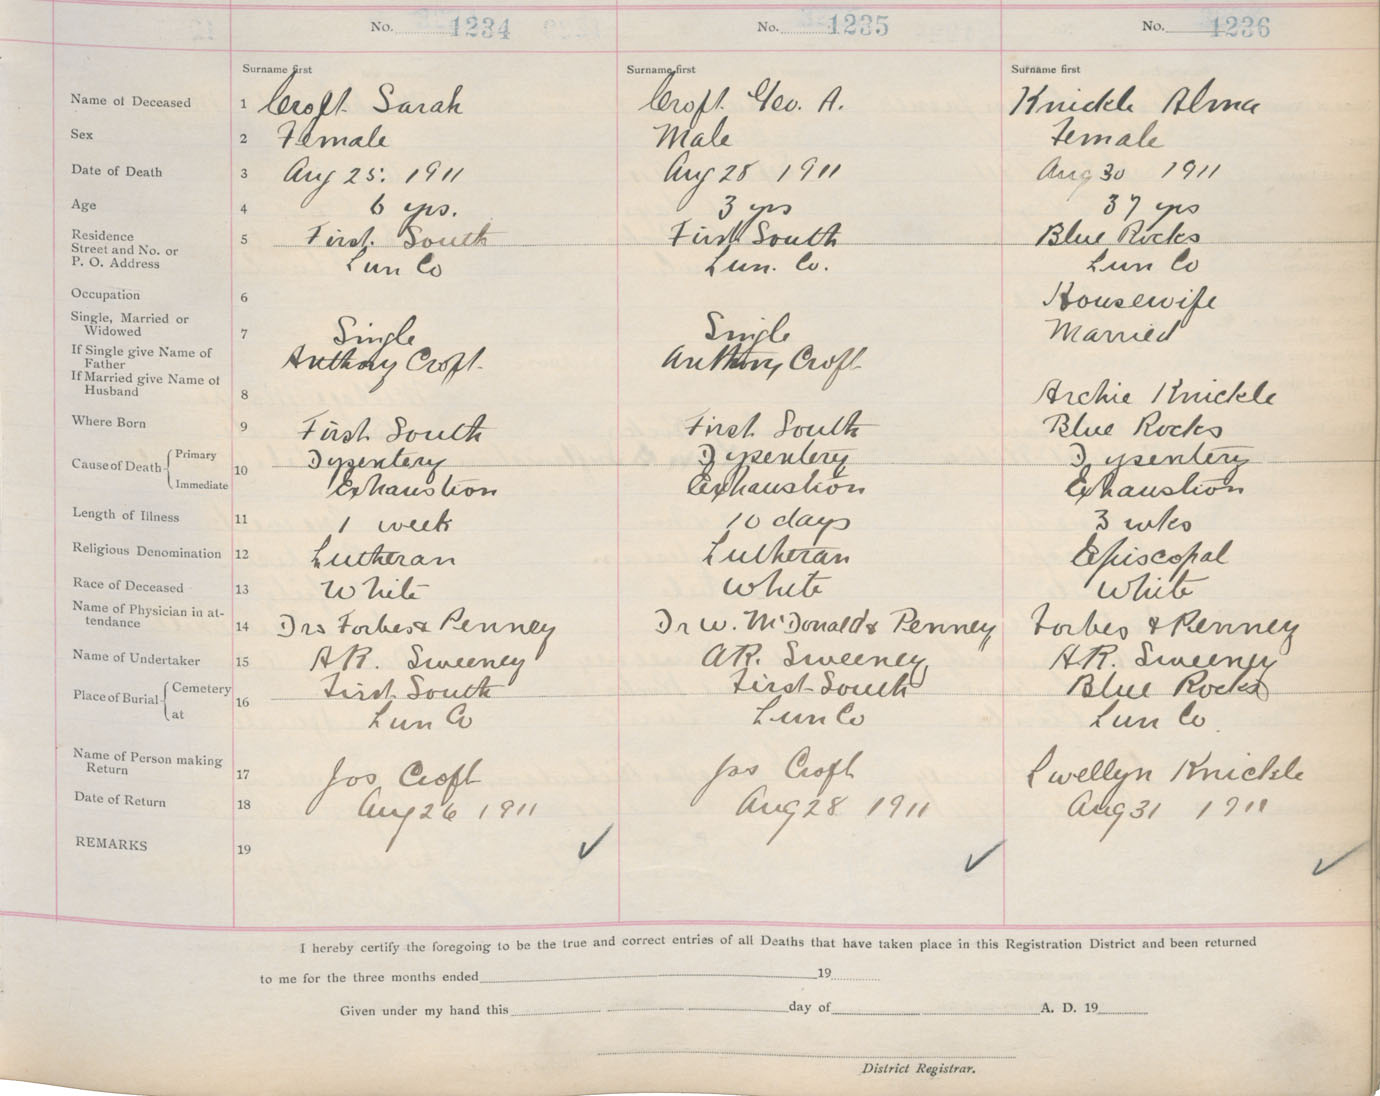 No. 1234 No. 1235 No. 1236
Surname first Surname first Surname first
Name of Deceased 1 Croft Sarah Croft Geo. A. Knickle Alma
Sex 2 Female Male Female
Date of Death 3 Aug 25. 1911 Aug 28 1911 Aug 30 1911
Age 4 6 yrs. 3 yrs 37 yrs
Residence
Street and No. or 5 First South First South Blue Rocks
P. O. Address Lun Co Lun. Co. Lun Co
Occupation 6 Housewife
Single, Married or
Widowed 7 Single Single Married
If Single give Name of
Father Anthony Croft Anthony Croft
If Married give Name of
Husband 8 Archie Knickle
Where Born 9 First South First South Blue Rocks
Cause of Death Primary 10 Dysentery Dysentery Dysentery
Immediate Exhaustion Exhaustion Exhaustion
Length of Illness 11 1 week 10 days 3 wks
Religious Denomination 12 Lutheran Lutheran Episcopal
Race of Deceased 13 White White White
Name of Physician in at-
tendance 14 Drs Forbes & Penney Dr W. McDonald & Penney Forbes & Penney
Name of Undertaker 15 A.R. Sweeney A.R. Sweeney A.R. Sweeney
Place of Burial Cemetery 16 First South First South Blue Rocks
at Lun Co Lun Co Lun Co
Name of Person making
Return 17 Jos Croft Jos Croft Lwellyn Knickle
Date of Return 18 Aug 26 1911 Aug 28 1911 Aug 31 1911
REMARKS 19
I hereby certify the foregoing to be the true and correct entries of all Deaths that have taken place in this Registration District and been returned
to me for the three months ended 19
Given under my hand this day of A. D. 19
District Registrar.